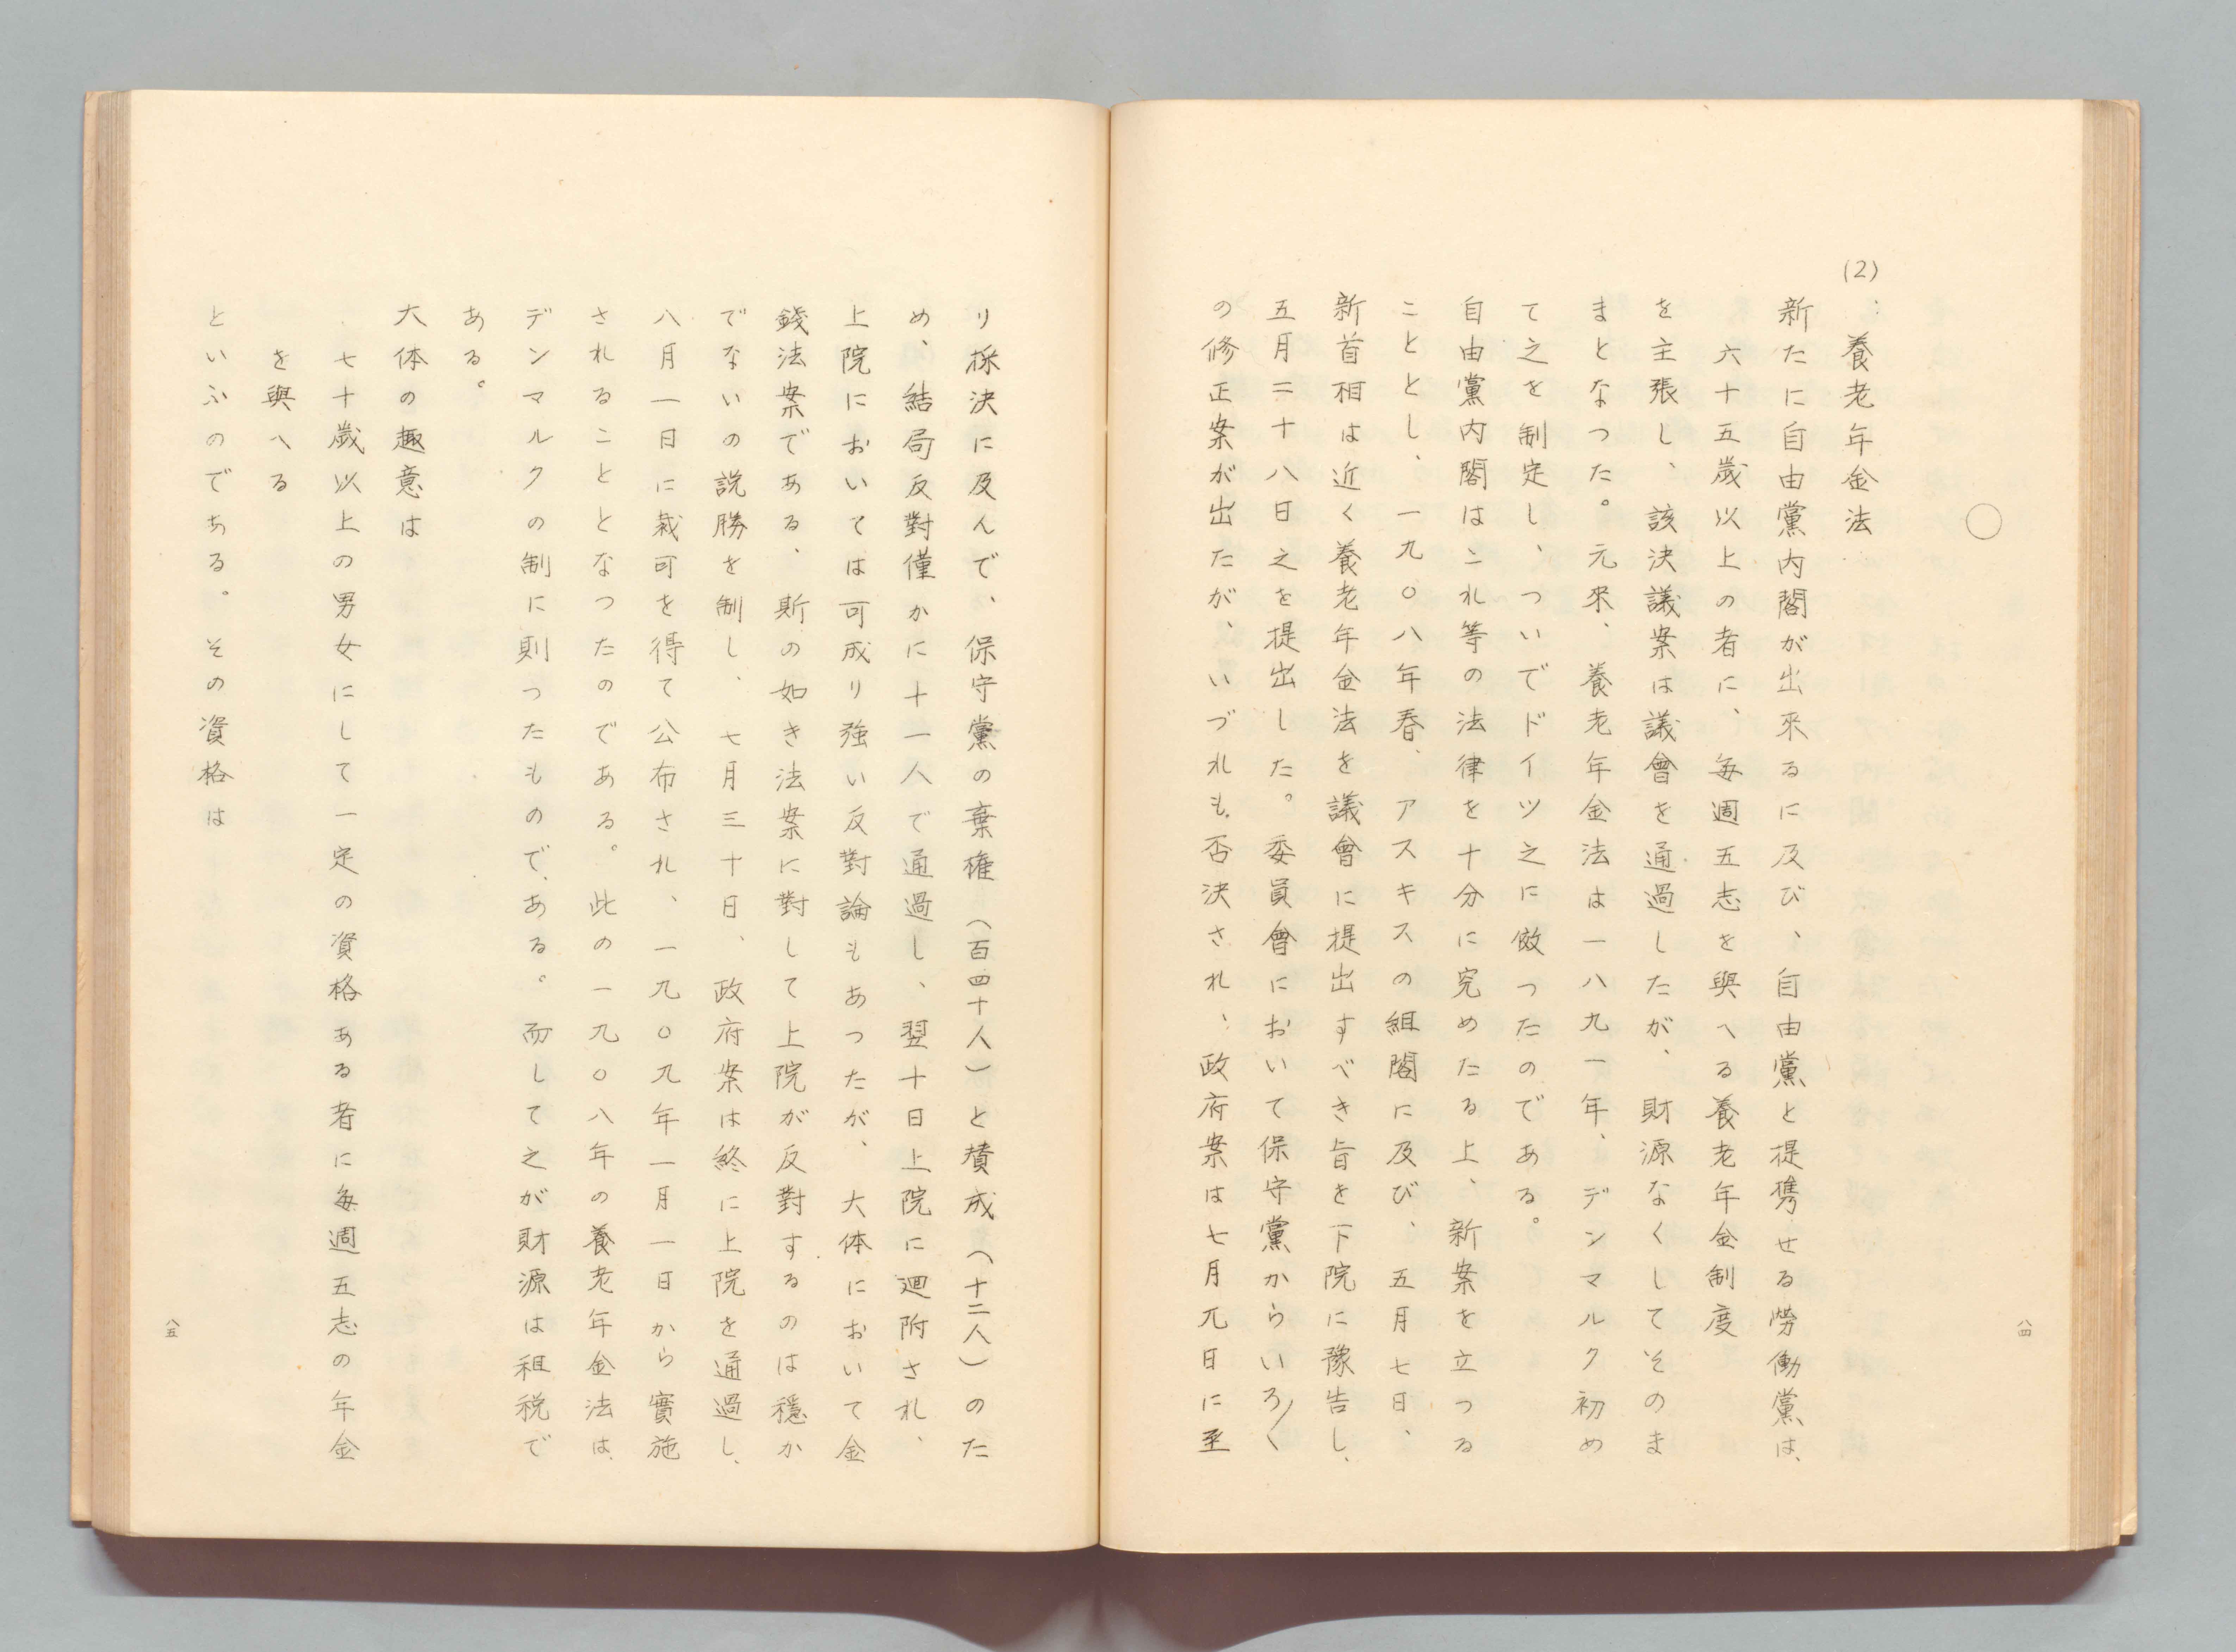 ○
(2) 養老年金法
新たに自由黨内閣が出來るに及び、自由黨と提携せる勞働黨は、
六十五歲以上の者に、毎週五志を與へる養老年金制度
を主張し、該決議案は議會を通過したが、財源なくしてそのま
まとなつた。元來、養老年金法は一八九一年、デンマルク初め
て之を制定し、ついでドイツ之に倣つたのである。
自由黨内閣はこれ等の法律を十分に究めたる上、新案を立つる
こととし、一九〇八年春、アスキスの組閣に及び、五月七日、
新首相は近く養老年金法を議會に提出すべき旨を下院に豫告し、
五月二十八日之を提出した。委員會において保守黨からいろ〳〵
の修正案が出たが、いづれも否決され、政府案は七月九日に至
八四
り採決に及んで、保守黨の棄権(百四十人)と賛成(十二人)のた
め、結局反對僅かに十一人で通過し、翌十日上院に廻附され、
上院においては可成り強い反對論もあつたが、大体において金
錢法案である、斯の如き法案に對して上院が反對するのは穩か
でないの説勝を制し、七月三十日、政府案は終に上院を通過し、
八月一日に裁可を得て公布され、一九〇九年一月一日から實施
されることとなつたのである。此の一九〇八年の養老年金法は、
デンマルクの制に則つたもので、ある。而して之が財源は租税で
ある。
大体の趣意は
七十歲以上の男女にして一定の資格ある者に毎週五志の年金
を與へる
といふのである。その資格は
八五